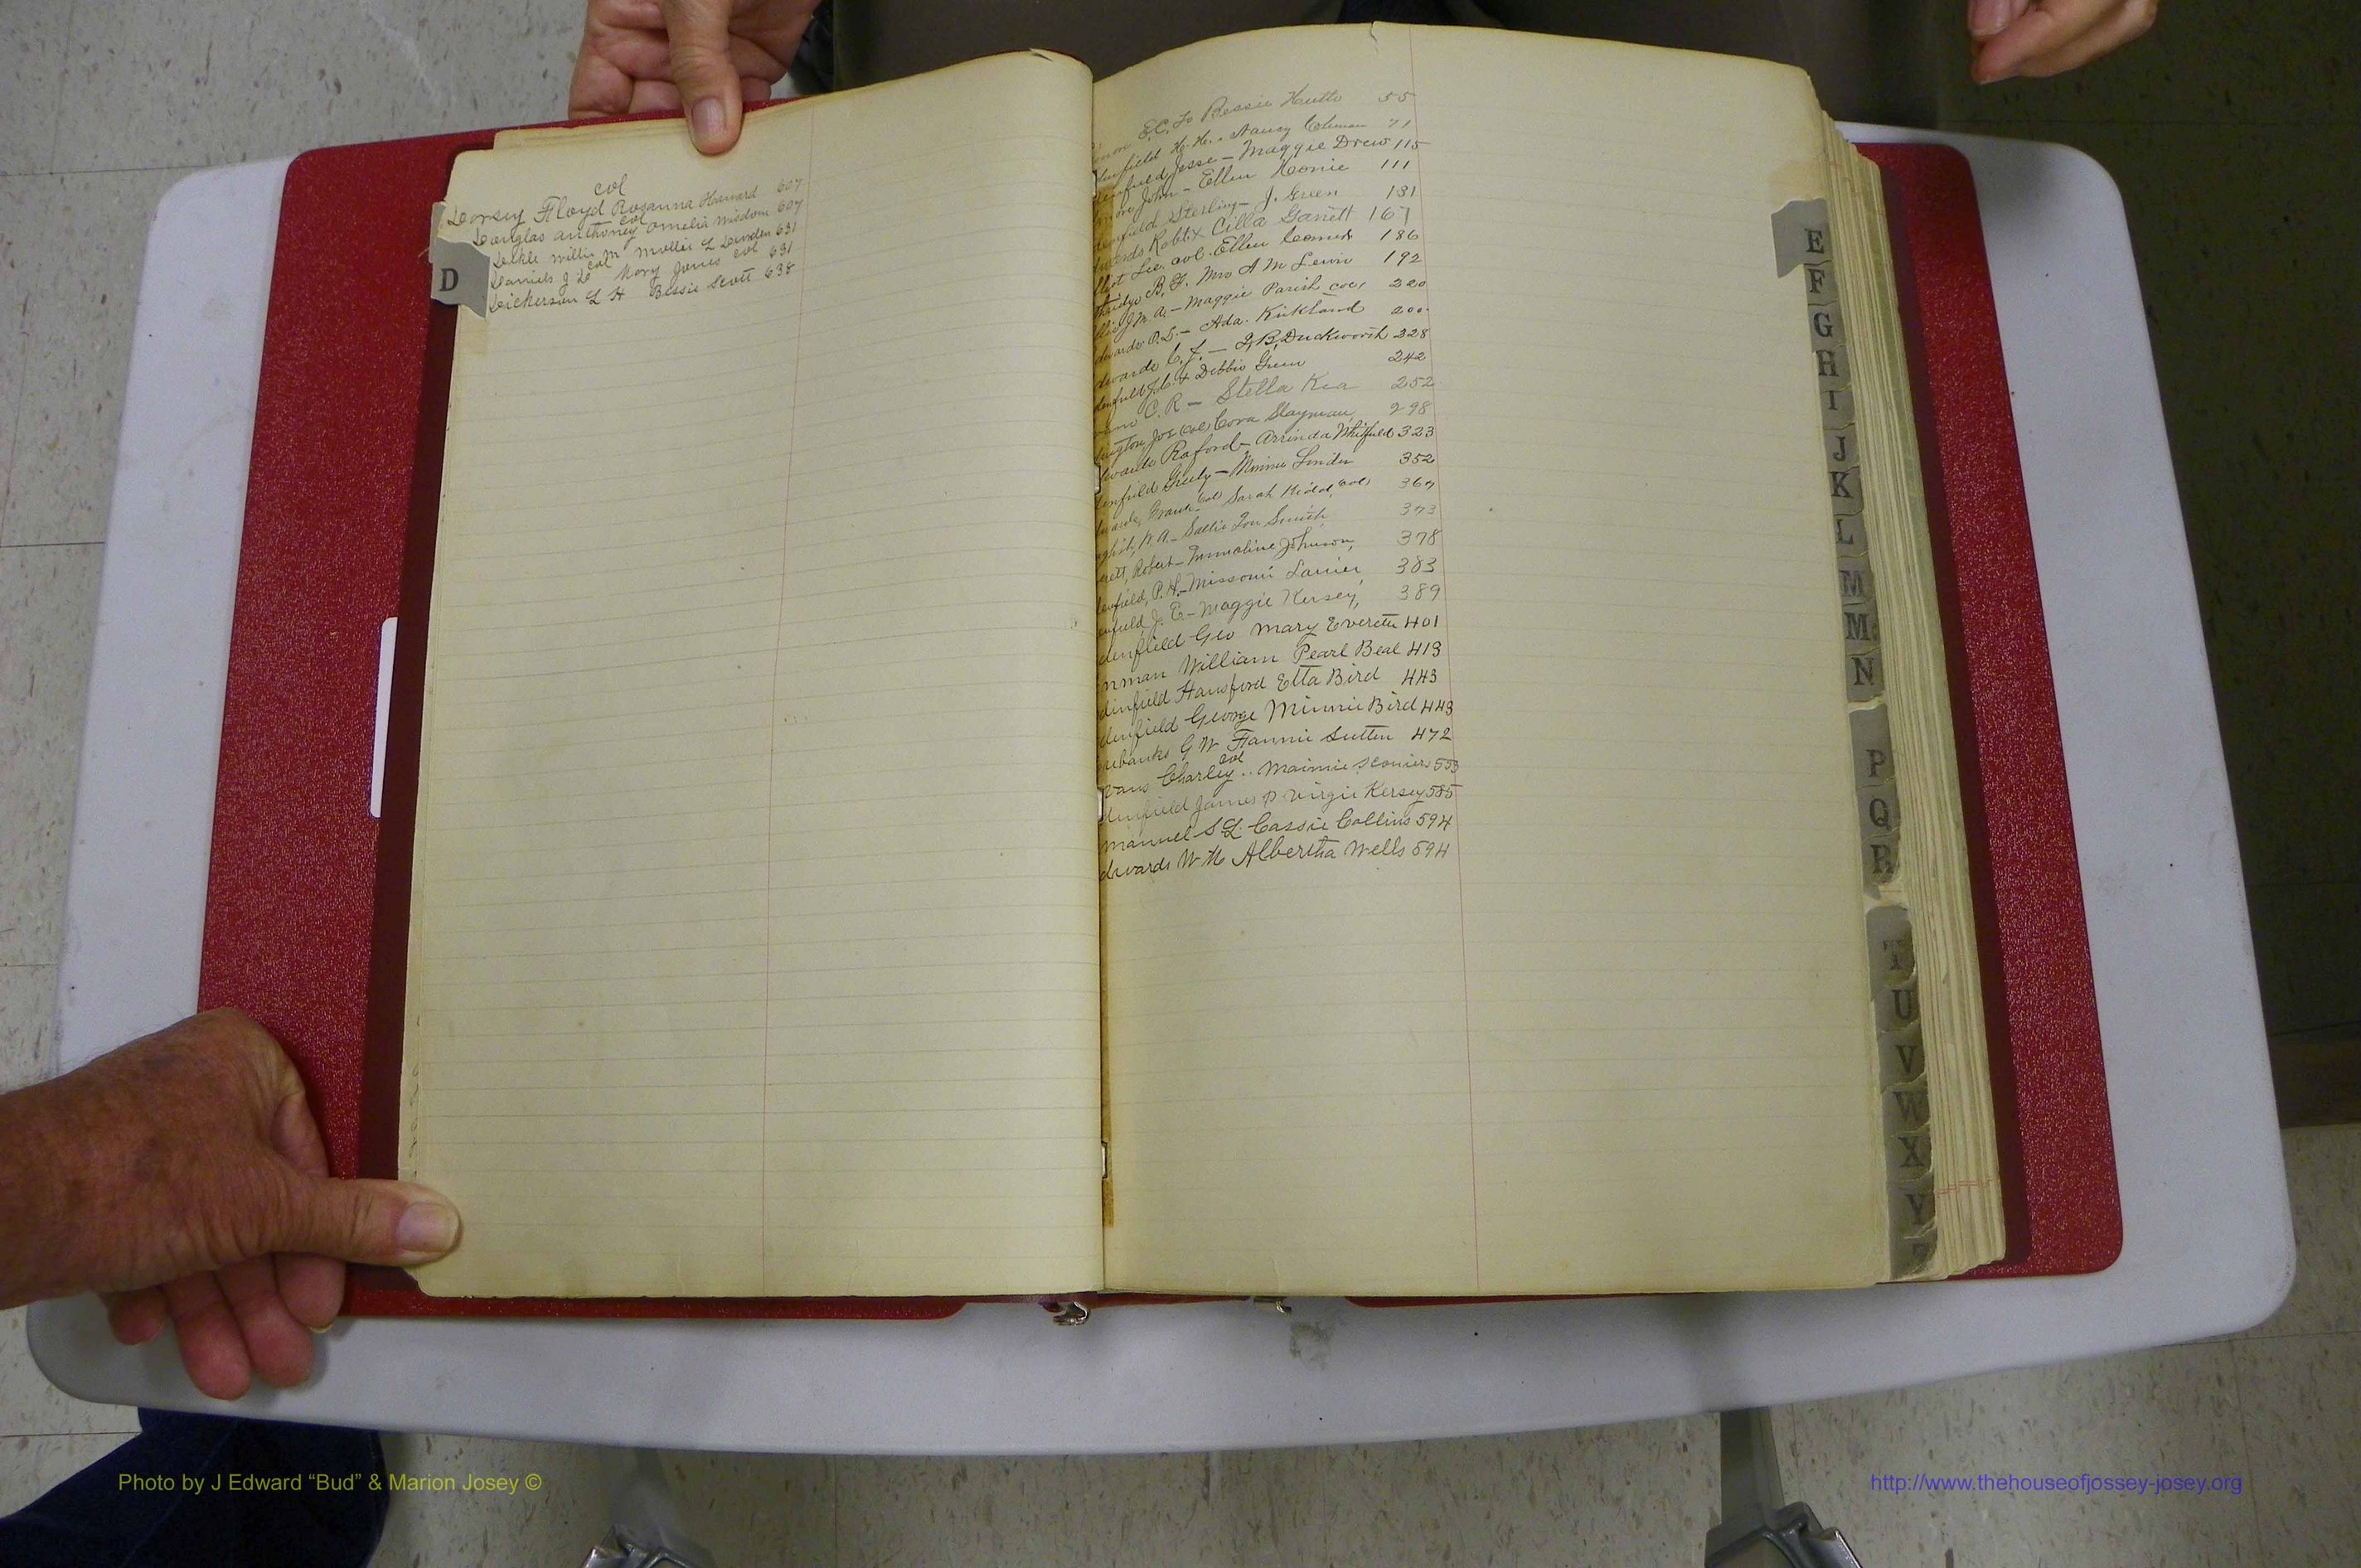 col
Dorsey Floyd Rosanna Howard 607
col
Douglas Anthoney Omelia Wisdom 607
Dekle Willie M Mollie L Linden 631
col
Daniels J D Mary Jones col 631
Dickerson L H Bessie Scott 638
D
E.C. To Bessie Hutto 55
field H. H. - Nancy Coleman 71
field Jesse - Maggie Drew 115
John - Ellen Homie 111
enfield Sterling - J. Green 131
Robbt Cilla Garrett 167
Lee col. Ellen 186
B. F. Mrs A M Lewis 192
J M A - Maggie Parish col 220
dwards O.S. - Ada. Kirkland 200
dwards C. J. - J, B, Duckworth 228
enfield & Debbie Green 242
C. R - Stella Kea 252
ington Joe (Col) Cora Slayman 298
dwards Raford - Arrinda Whitfield 323
enfield Greely - Minnie Linder 352
dwards, Frank Col Sarah Kidd, Col 367
nglish, W. A. - Sallie Lou Smith, 373
erett, Robert - Emmaline Johnson, 378
enfield, P. H. - Missouri Lanier, 383
enfield, J. E - Maggie Kersey, 389
denfield Geo Mary Everette 401
nman William Pearl Beal 413
dinfield Hansford Etta Bird 443
denfield George Minnie Bird 443
ubanks G W Fannie Sutton 472
col
vans Charley .. Maimie Sconiers 553
denfield James P Virgie Kersey 585
manuel S L Cassie Collins 594
dwards W M Albertha Wells 594
E
F
G
H
I
J
K
L
M
Mc
N
P
Q
R
T
U
V
W
X
Y
Z
Photo by J Edward “Bud” & Marion Josey ©
http://www.thehouseofjossey-josey.org